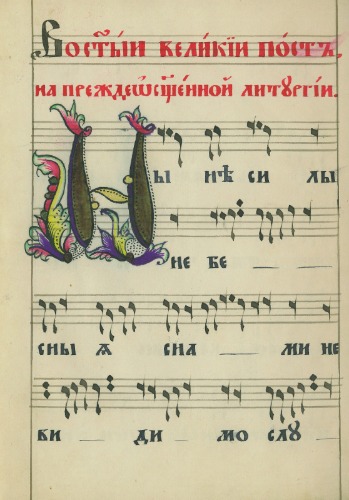 Во ст҃ы́й вели́кїй по́стъ,
на преждеѡсщ҃е́нной литꙋргі́и.
Ны нѣ си лы
не бе _ _
сны ѧ сна _ ми не
ви _ ди _ мо слꙋ _